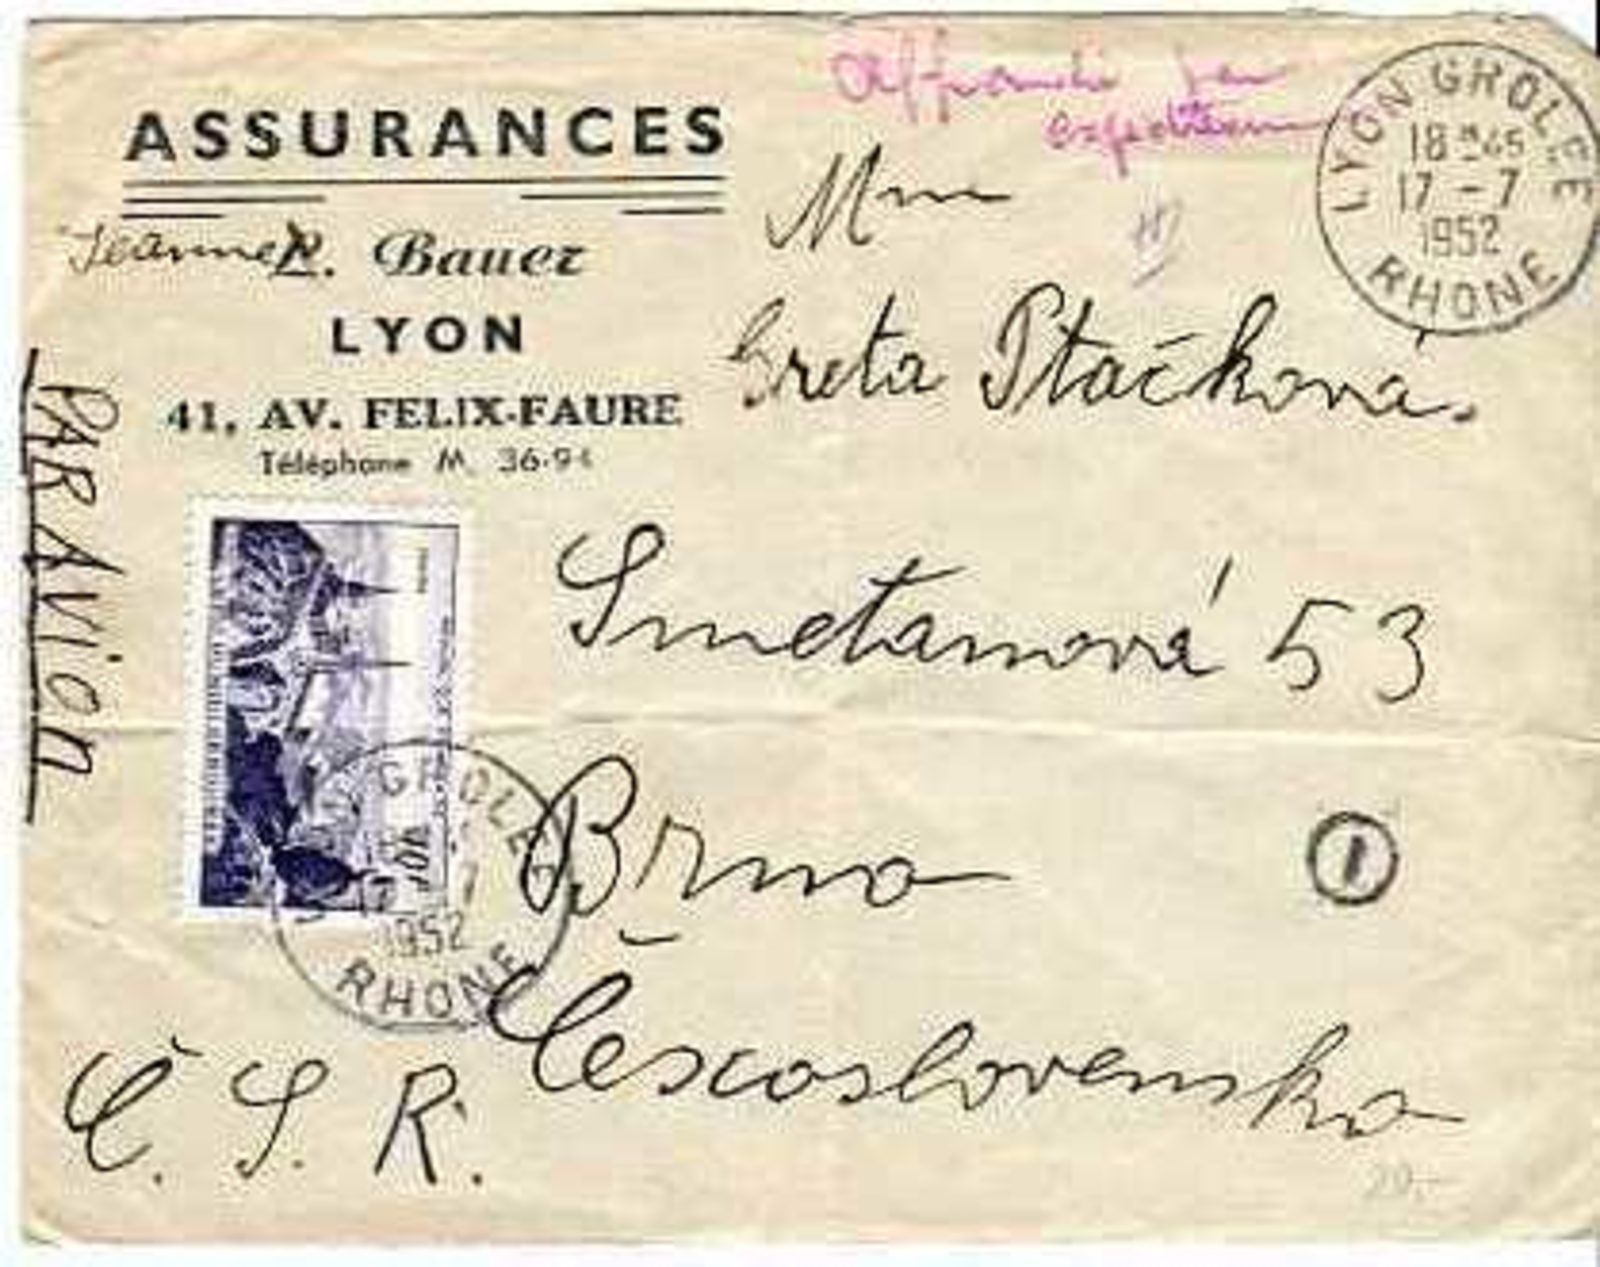 Affranchi par
expéditeur
ASSURANCES
Jeanne R. Bauer
LYON
41, AV. FELIX-FAURE
Téléphone M. 36-94
PAR AVion
LYON GROLEE
18 H 45
17 - 7
1952
RHONE
Mme
Greta Ptačková.
Smetanová 53
Brno
Československo
Č. S. R.
GROLEE
1952
RHONE
1
20.-